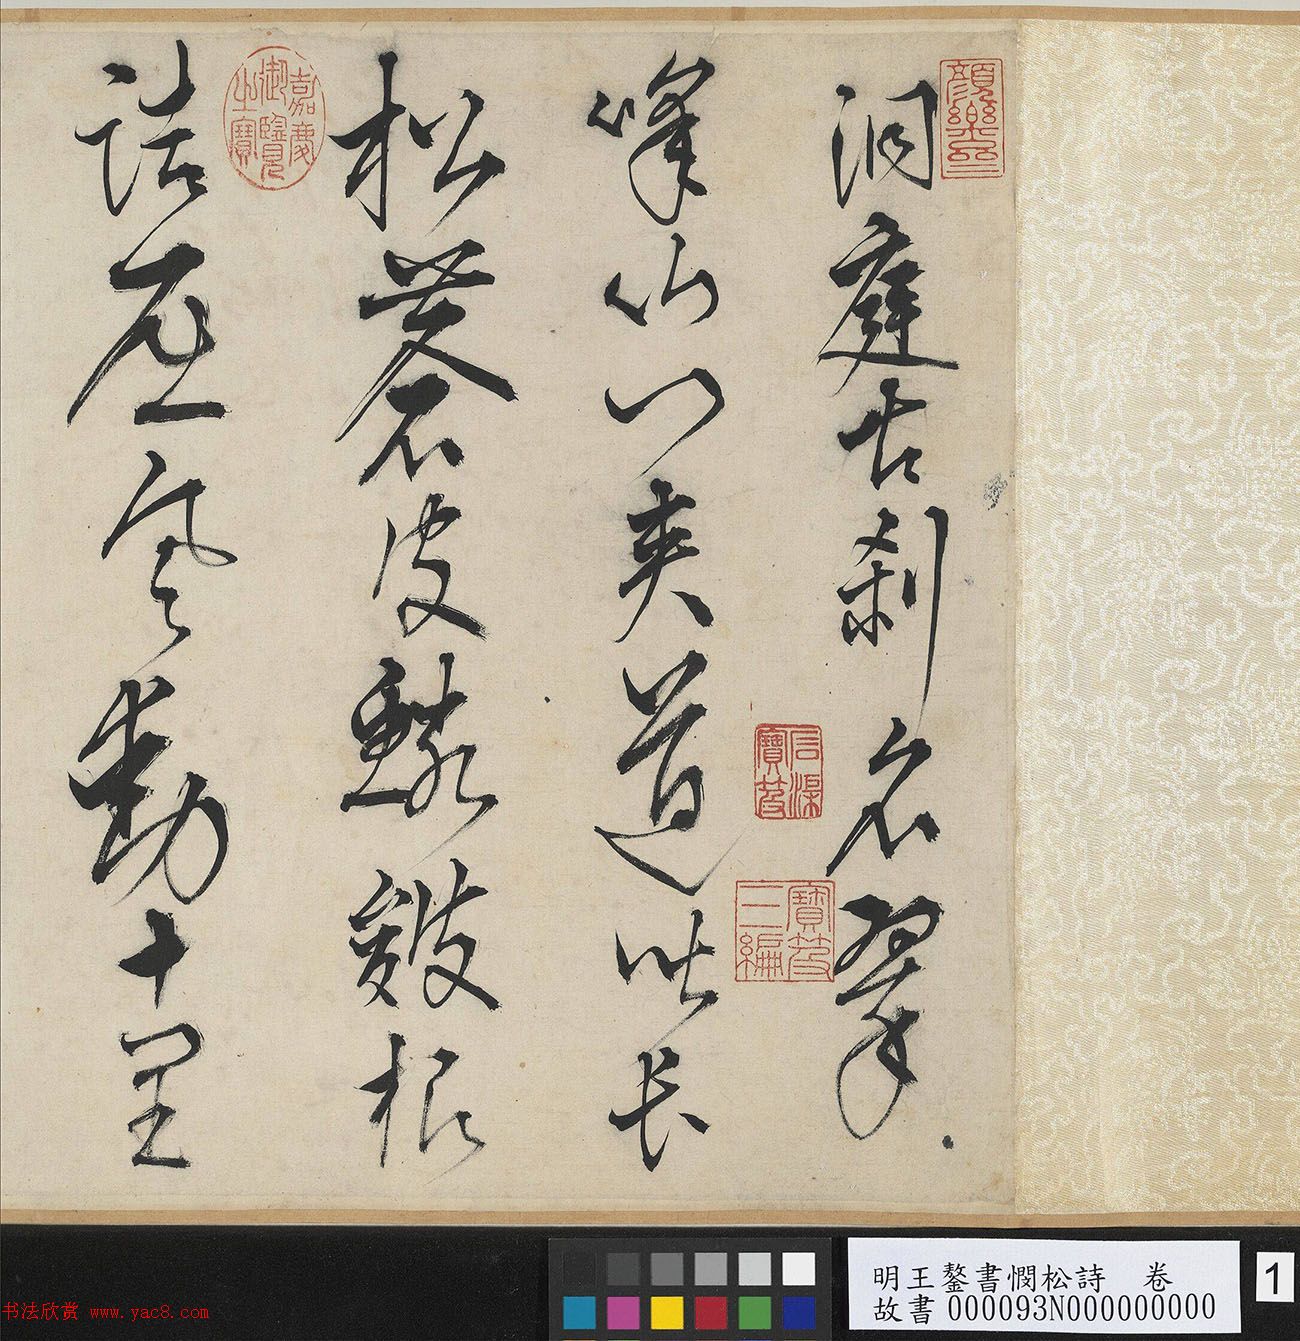 洞庭古刹名翠
峯山門夾道皆長
松蒼皮鱗皴根
詰屈風動十里
嘉慶御覽之寶
石渠寶笈
寶笈三編
明王鏊書憫松詩 卷
故書 000093N000000000
1
书法欣赏 www.yac8.com